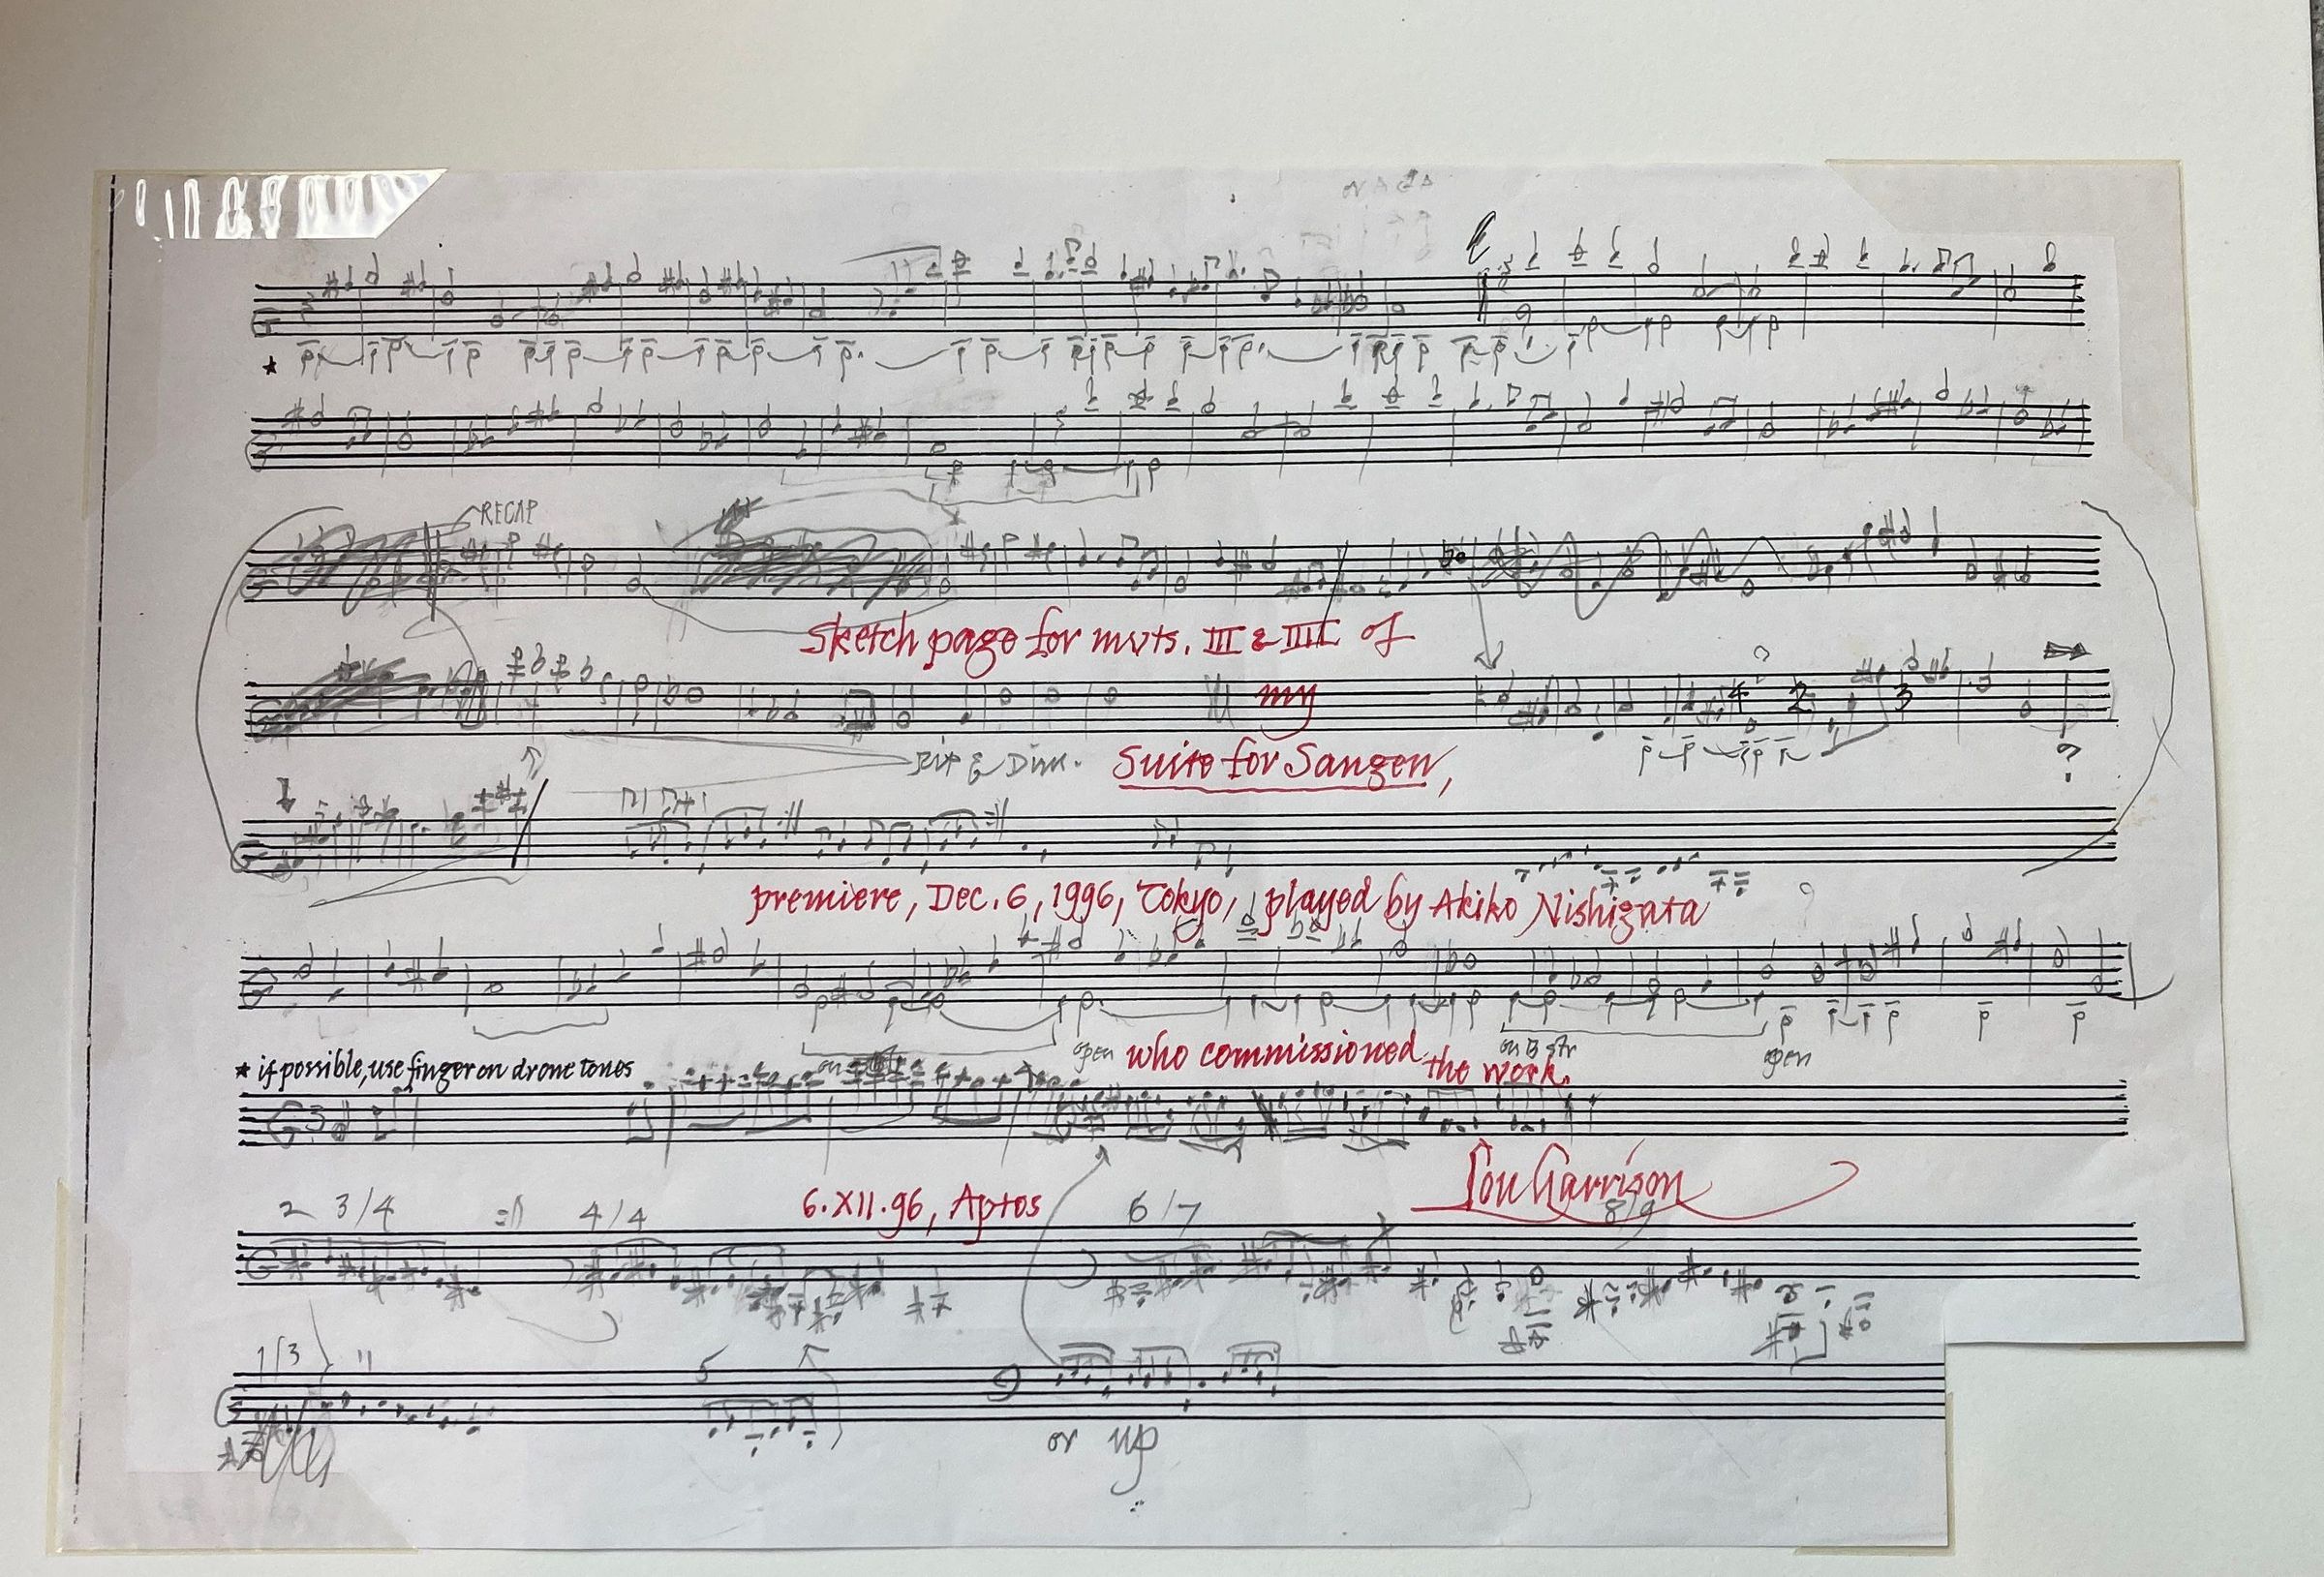 or
RECAP
Sketch page for mvts. III & IIII of
my
4 2 3
Rit & Dim.
Suite for Sangen,
?
premiere, Dec. 6, 1996, Tokyo, played by Akiko Nishigata
open
who commissioned
on B str
open
the work.
* if possible, use finger on drone tones
3
Lou Harrison
2 3/4
4/4
6.XII.96, Aptos
6/7
8/9
1/3
11
5
or up